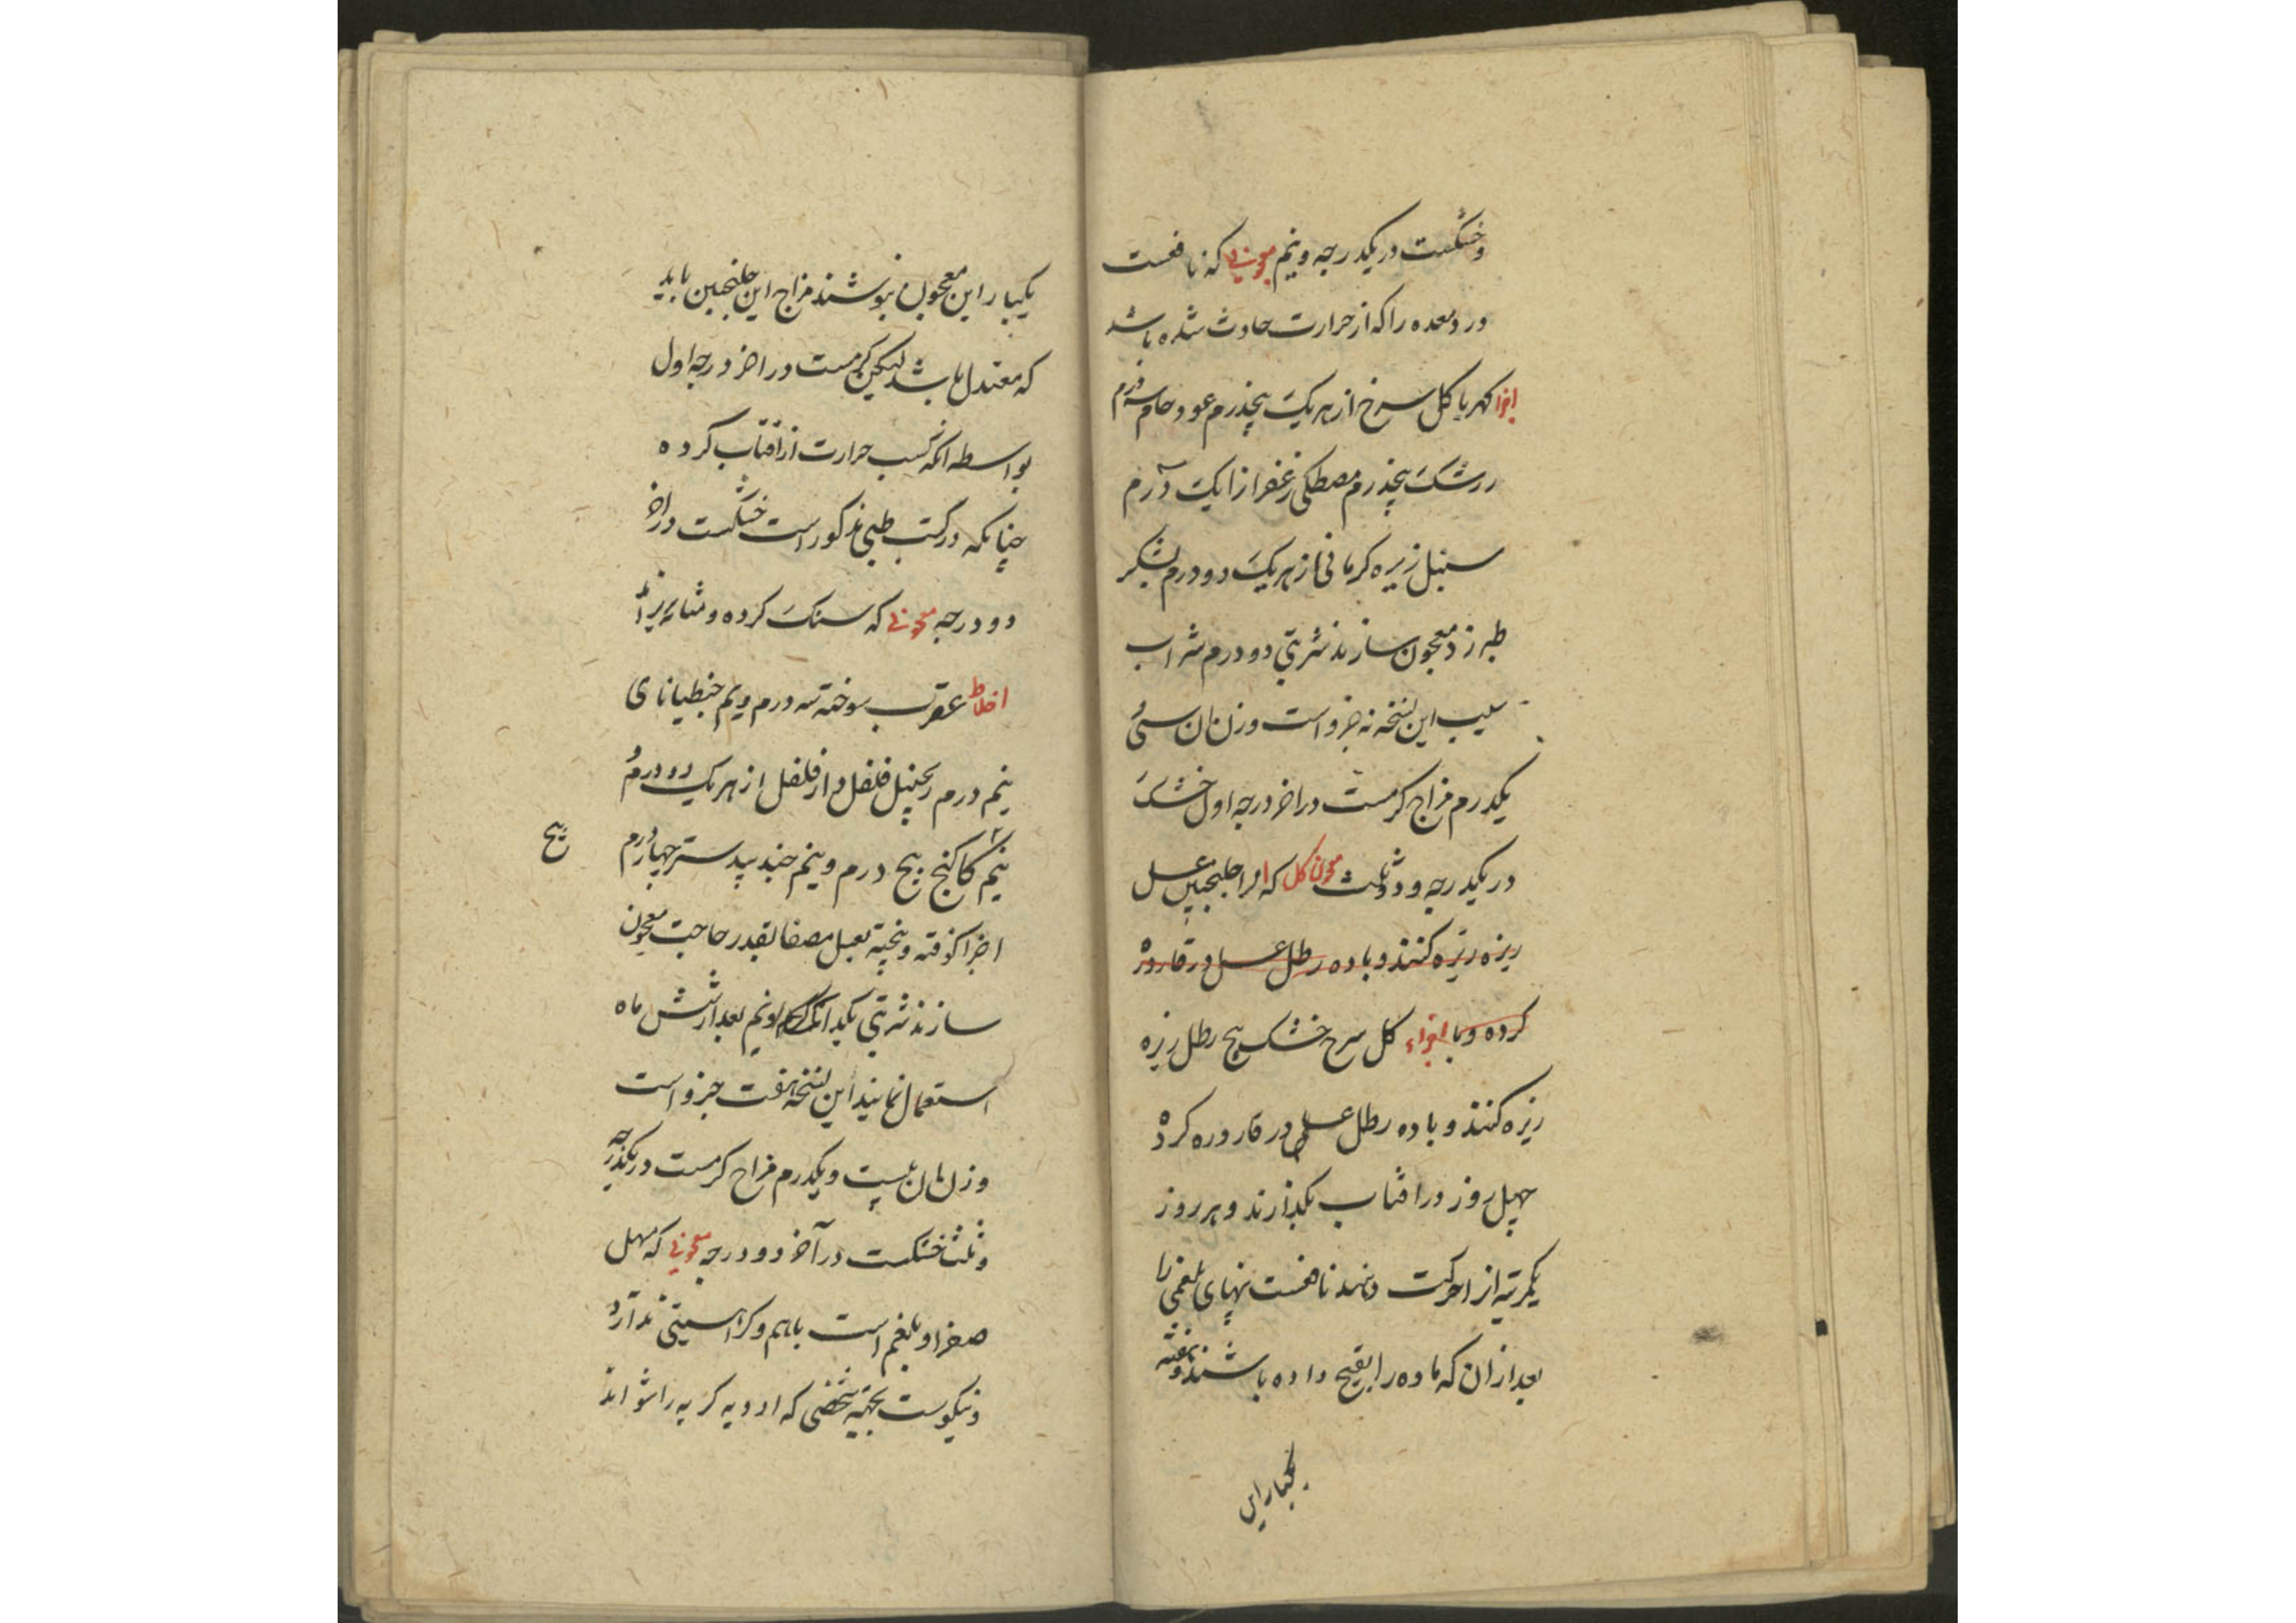 و خشکست در یکدرجه و نیم معجونی که نافعست
درد معده را که از حرارت حادث شده باشد
اجزا کهربا کل سرخ از هر یک پنجدرم عود خام سه درم
زرشک پنجدرم مصطکی زعفران از یک درم
سنبل زیره کرمانی از هر یک دو درم بشکر
طبرزد معجون سازند شربتی دو درم شراب
سیب این نسخه نه جزو است وزن ان سی و
یکدرم مزاج کرمست در اخر درجه اول خشک
در یکدرجه و دو ثلث معجون کل که انرا جلنجبین عسل
ریزه ریزه کنند و با ده رطل عسل در قاروره
کرده و با اجزاء کل سرخ خشک پنج رطل ریزه
ریزه کنند و با ده رطل عسل در قاروره کرده
چهل روز در افتاب بکذارند و هر روز
یکمرتبه از حرکت دهند نافعست تبهای بلغمی را
بعد از ان که ماده را نضج داده باشند و هفته
یکبار این
یکبار این معجون بنوشند مزاج این جلنجبین باید
که معتدل باشد لیکن کرمست در اخر درجه اول
بواسطه انکه کسب حرارت از افتاب کرده
چنانکه در کتب طبی مذکور است خشکست در اخر
دو درجه معجونی که سنک کرده و مثانه بریزاند
اخلاط عقرب سوخته سه درم و نیم جنطیانای
نیم درم زنجبیل فلفل دار فلفل از هر یک دو درم و
نیم کاکنج پنج درم و نیم جندبیدستر چهار درم
پنج
اجزا کوفته و بیخته بعسل مصفا بقدر حاجت معجون
سازند شربتی یکدانک و نیم بعد از شش ماه
استعمال نمایند این نسخه هفت جزو است
وزن ان بیست و یکدرم مزاج کرمست در یکدرجه
و ثلث خشکست در آخر دو درجه معجونی که مسهل
صفرا و بلغم است باهم و کراهیتی ندارد
و نیکوست بجهته شخصی که ادویه کریه را نتواند